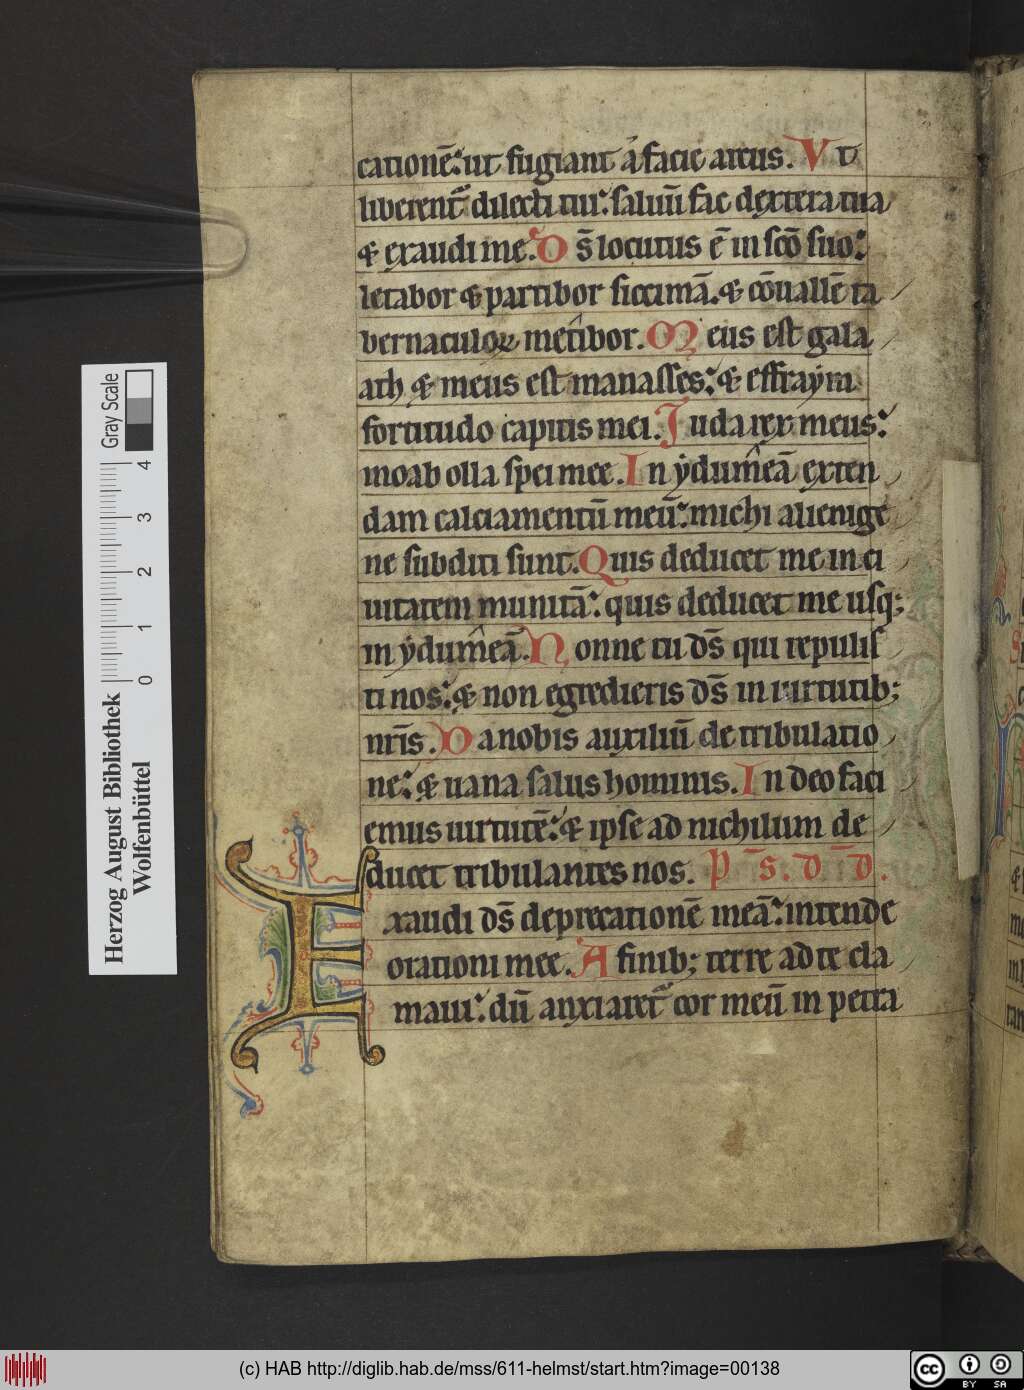 cationē: ut fugiant a facie arcus. Vt
liberent᷑ dilecti tui: saluū fac dextera tua
& exaudi me. D s̄ locutus ē in scō suo:
letabor & partibor siccimā. & cōuallē ta
bernaculoꝝ metibor. Meus est gala
ath & meus est manasses: & effraẏm
fortitudo capitis mei. Juda rex meus:
moab olla spei mee. In ẏdumeā exten
dam calciamentū meū: michi alienige
ne subditi sunt. Quis deducet me in ci
uitatem munitā: quis deducet me usq;
in ẏdumeā. Nonne tu ds̄ qui repulis
ti nos: & non egredieris ds̄ in uirtutib;
nr̄is. Da nobis auxiliū de tribulatio
ne: & uana salus hominis. In deo faci
emus uirtutē: & ipse ad nichilum de
ducet tribulantes nos. P ̄s. d ̄d.
Exaudi ds̄ deprecationē meā: intende
orationi mee. A finib; terre ad te cla
maui: dū anxiaret᷑ cor meū in petra
Herzog August Bibliothek
Wolfenbüttel
Gray Scale
0 1 2 3 4
(c) HAB http://diglib.hab.de/mss/611-helmst/start.htm?image=00138
cc BY SA